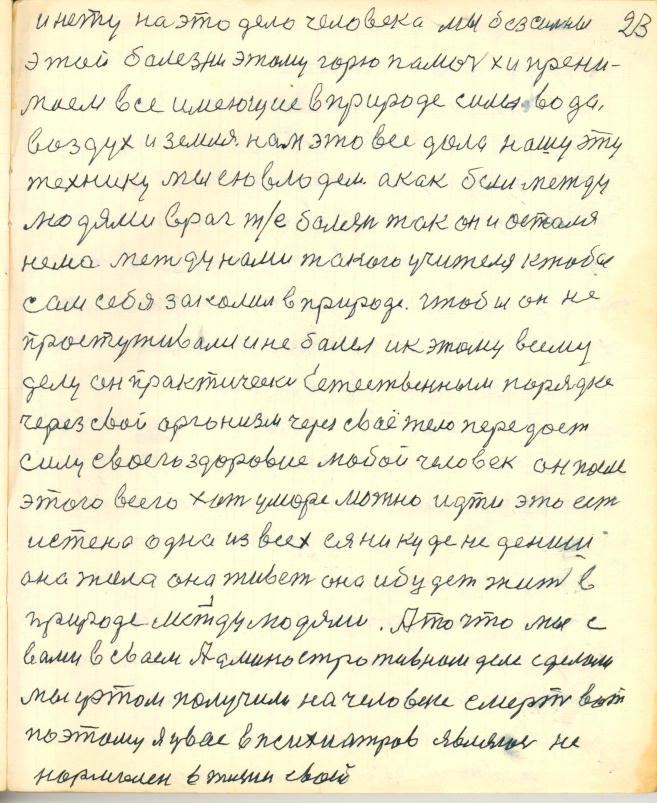 23
инету на это дело человека мы безсильны
этой балезни этому горю памоч хи прени-
маем все имеющие в природе силы вода,
воздух и земля. нам это все дала нашу эту
технику мы ею влодем. а как был между
людями враг т/е балезн так он и остался
нема между нами такого учителя ктобы
сам себя заколил в природе. чтобы он не
простуживался и не балел ик этому всему
делу он практически Естественным порядке
через свой организм через своё тело передает
силу своего здоровие любой человек он после
этого всего хот уморе можно идти это ест
истена одна из всех ея никуде не дениш
она жила она живет она и будет жит в
природе между людями. А то что мы с
вами в своем Админостротивном деле сделали
мы ув этом получили на человеке смерть вот
поэтому я увас в психиатров являюся не
нормален в жизни своей